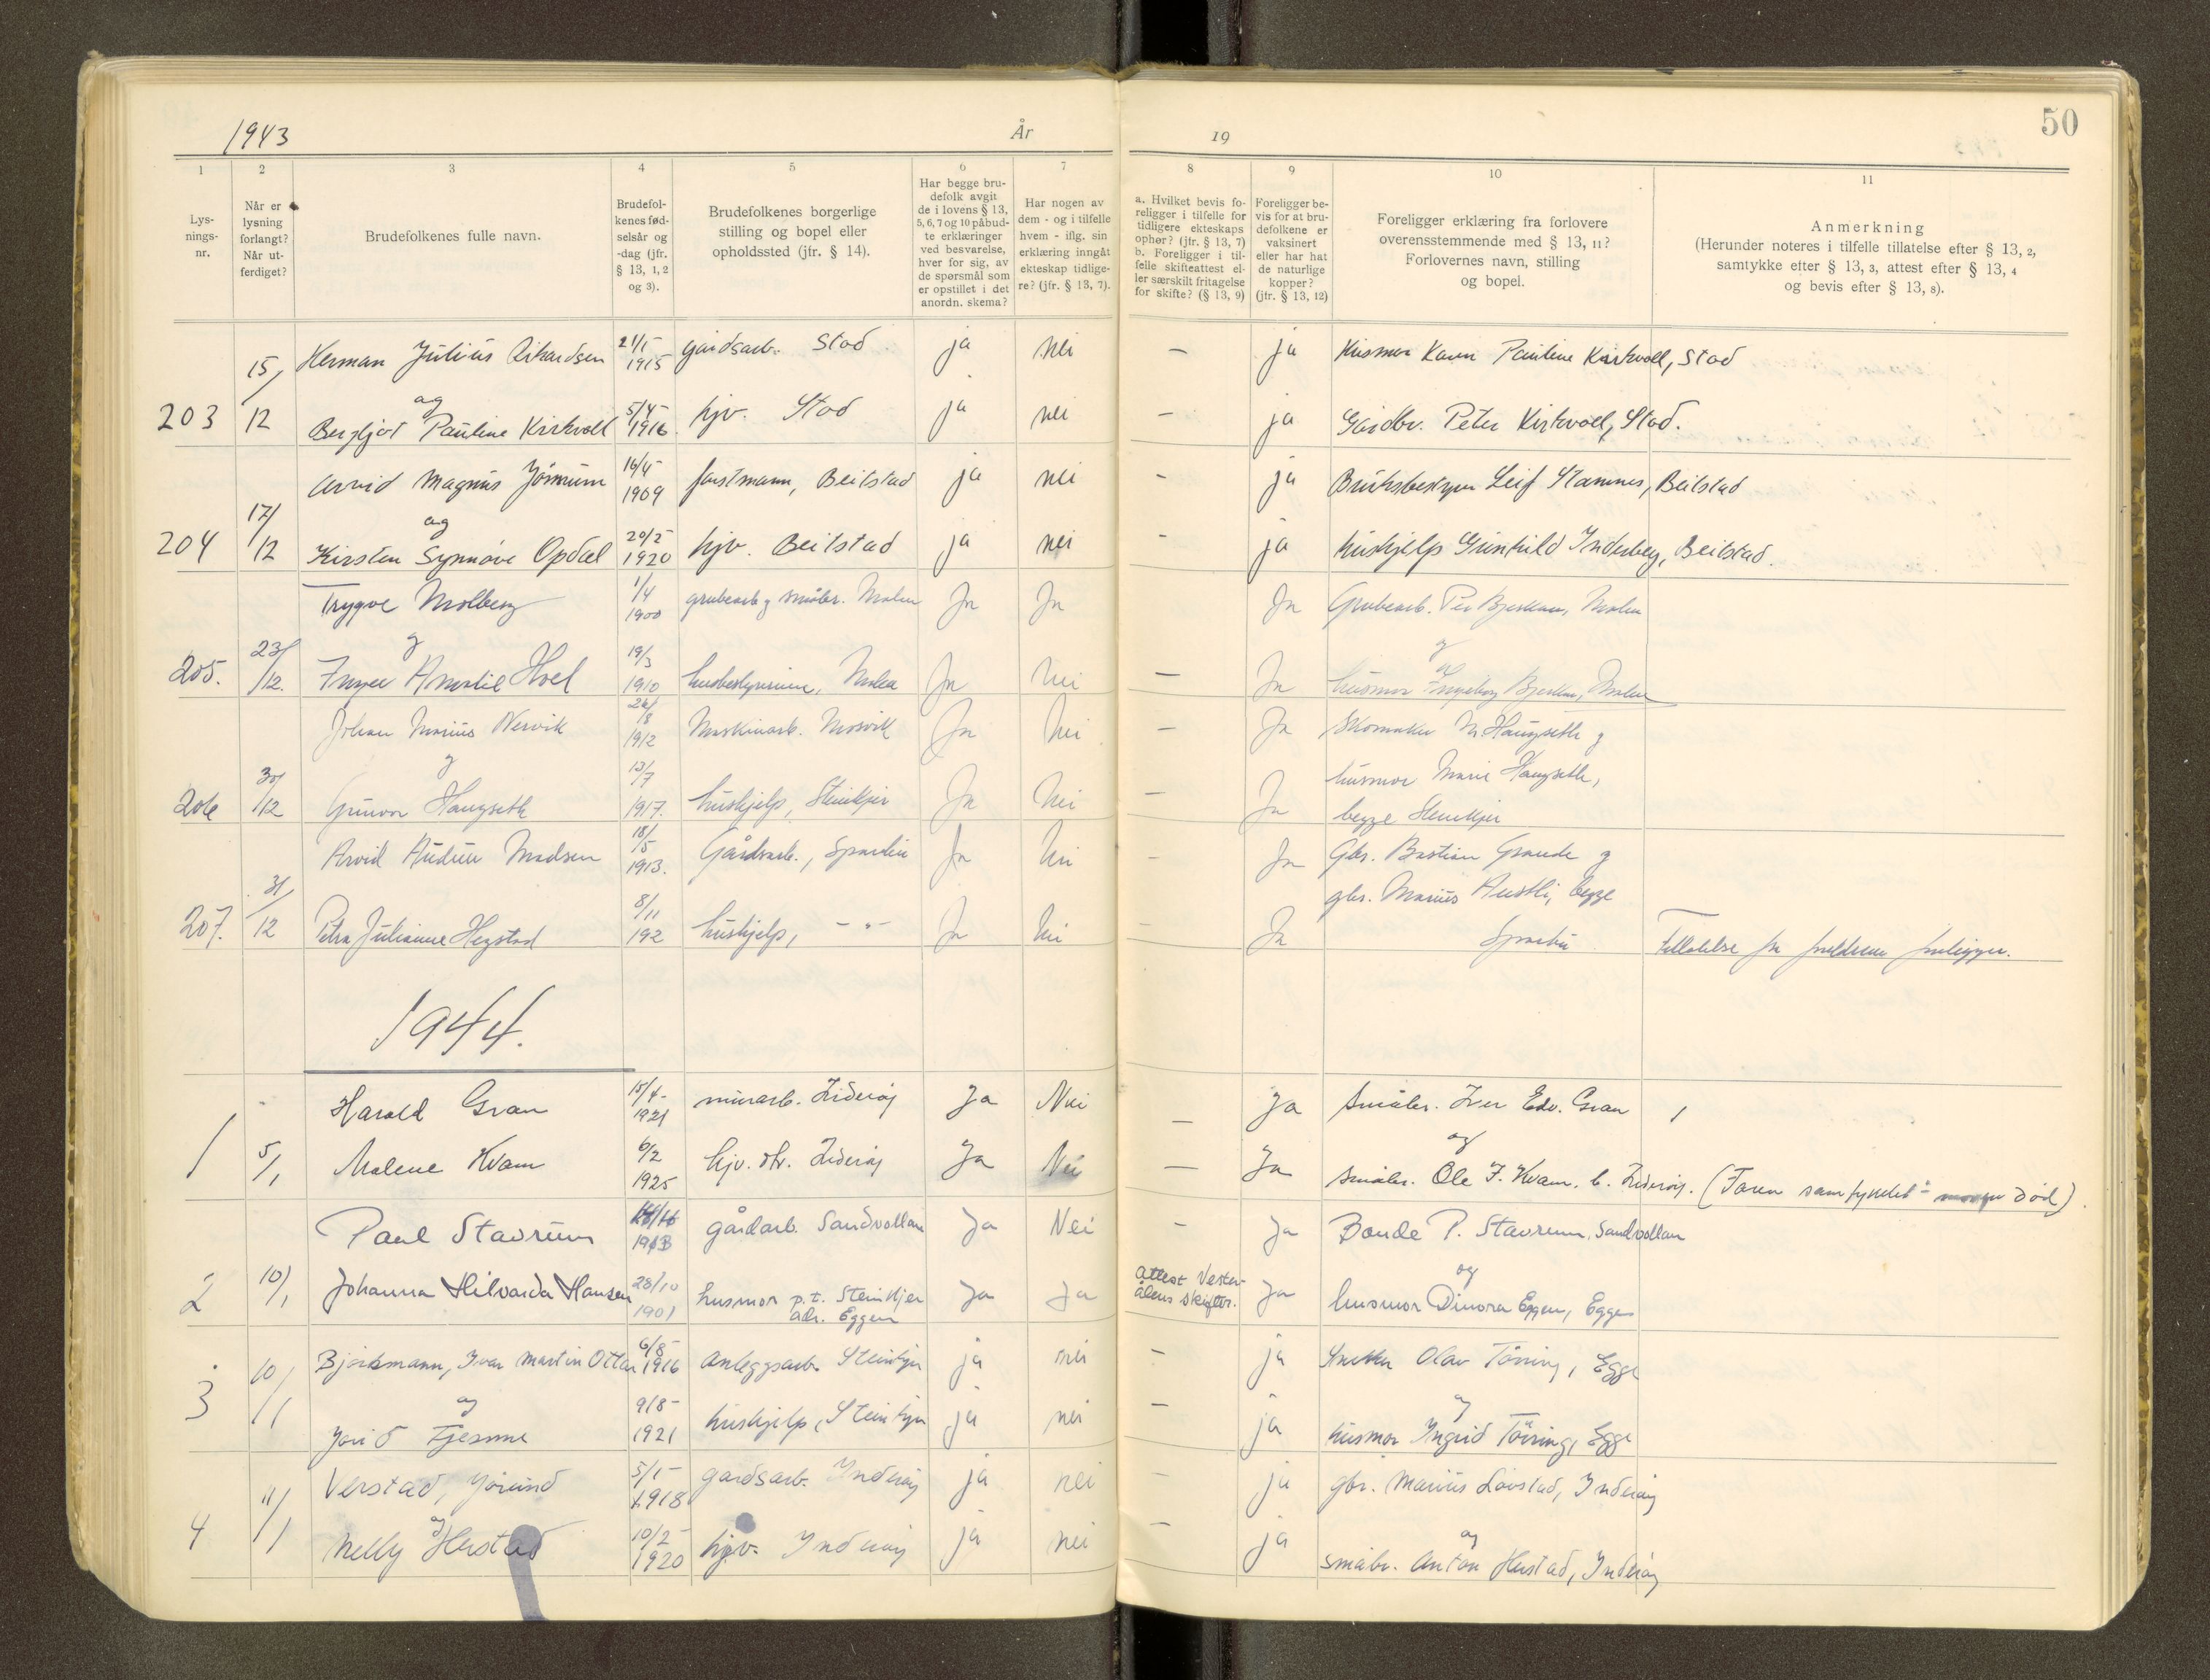 50
1943 År 19
1 2 3 4 5 6 7 8 9 10 11
Lys-
nings-
nr.
Når er
lysning
forlangt?
Når ut-
ferdiget?
Brudefolkenes fulle navn.
Brudefol-
kenes fød-
selsår og
-dag (jfr.
§ 13, 1, 2
og 3).
Brudefolkenes borgerlige
stilling og bopel eller
opholdssted (jfr. § 14).
Har begge bru-
defolk avgit
de i lovens § 13,
5, 6, 7 og 10 påbud-
te erklæringer
ved besvarelse,
hver for sig, av
de spørsmål som
er opstillet i det
anordn. skema?
Har nogen av
dem - og i tilfelle
hvem - iflg. sin
erklæring inngåt
ekteskap tidlige-
re? (jfr. § 13, 7).
a. Hvilket bevis fo-
religger i tilfelle for
tidligere ekteskaps
ophør? (jfr. § 13, 7)
b. Foreligger i til-
felle skifteattest el-
ler særskilt fritagelse
for skifte? (§ 13, 9)
Foreligger be-
vis for at bru-
defolkene er
vaksinert
eller har hat
de naturlige
kopper?
(jfr. § 13, 12)
Foreligger erklæring fra forlovere
overensstemmende med § 13, 11?
Forlovernes navn, stilling
og bopel.
Anmerkning
(Herunder noteres i tilfelle tillatelse efter § 13, 2,
samtykke efter § 13, 3, attest efter § 13, 4
og bevis efter § 13, 8).
Herman Julius Rikardsen 21/5- 1915 gårdsarb. Stod ja nei — ja Husmor Karen Pauline Kirkvoll, Stod
og
203 15/12 Bergljot Pauline Kirkvoll 5/4- 1916 hjv. Stod ja nei — ja Gårdbr. Peter Kirkvoll, Stod.
Arvid Magnus Jönnum 16/4- 1909 forstmann, Beitstad ja nei - ja Bruksbestyrer Leif Stamnes, Beitstad
og
204 17/12 Kirsten Synnöve Opdal 20/2- 1920 hjv. Beitstad ja nei - ja hushjelp Gunhild Inderberg, Beitstad.
Trygve Molberg 1/4 1900 grubearb og småbr. Malm Ja Ja Ja Grubearb. Per Bjerkan, Malm
og
205. 23/12. Inger Amalie Hoel 19/3 1910 husbestyrerinne, Malm Ja Nei — Ja husmor Ingeborg Bjerkan, Malm
Johan Marius Nervik 26/8 1912 Maskinarb. Mosvik Ja Nei — Ja Skomaker M. Haugseth og
og husmor Marie Haugseth,
206 30/12 Gunvor Haugseth 13/7 1917. hushjelp, Steinkjer Ja Nei — Ja begge Steinkjer
Arvid Audun Madsen 18/5 1913. Gårdsarb., Sparbu Ja Nei - Ja Gbr. Bastian Grande og
gbr. Marius Austli, begge
207. 31/12 Petra Julianne Hegstad 8/11 192 hushjelp, - " - Ja Nei - Ja Sparbu Tillatelse fra foreldrene foreligger.
1944.
Harald Gran 15/4- 1921 murarb. Inderøy Ja Nei — Ja Småbr. Iver Edv. Gran
og
1 5/1 Malene Kvam 6/2 1925 hjv. dtr. Inderøy Ja Nei — Ja småbr. Ole J. Kvam. b. Inderøy. (Faren samtykket - moren död).
Paul Stavrum gårdarb. Sandvollan Ja Nei - Ja Bonde P. Stavrum, Sandvollan
og
2 10/1 Johanna Hilvarda Hansen 28/10 1901 husmor p.t. Steinkjer Ja Ja Attest Vester- Ja husmor Dinora Eggen, Egge
adr. Eggen ålens skifter.
Björkmann, Ivar Martin Ottar 6/8- 1916 anleggsarb. Steinkjer ja nei — ja Snekker Olav Töring, Egge
og og
3 10/1 Jorid Fjesme 9/8- 1921 hushjelp, Steinkjer ja nei — ja husmor Ingrid Töring, Egge
Verstad, Jörund 5/1- 1918 gardsarb. Inderöy ja nei — ja gbr. Marius Lovstad, Inderöy
og og
4 11/1 Nelly Hustad 10/2- 1920 hjv. Inderöy ja nei — ja småbr. Anton Hustad, Inderöy